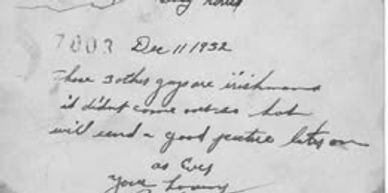 7003 Dec 11 1932
These 3 other guys are irishmans
it didn't come out so hot
will send a good picture later on
as Ever
your Loving